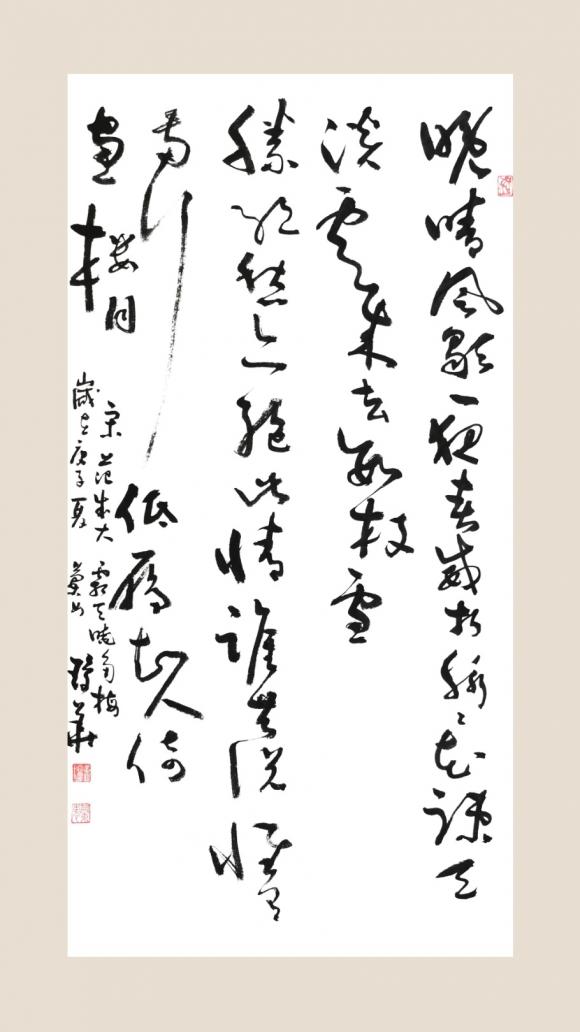 晚晴风歇一夜春威折脉々花疎天
淡雲来去数枝雪
勝绝愁亦绝此情谁共说惟有
两行低雁知人倚
画楼月
宋范成大霜天晓角梅
岁在庚子夏